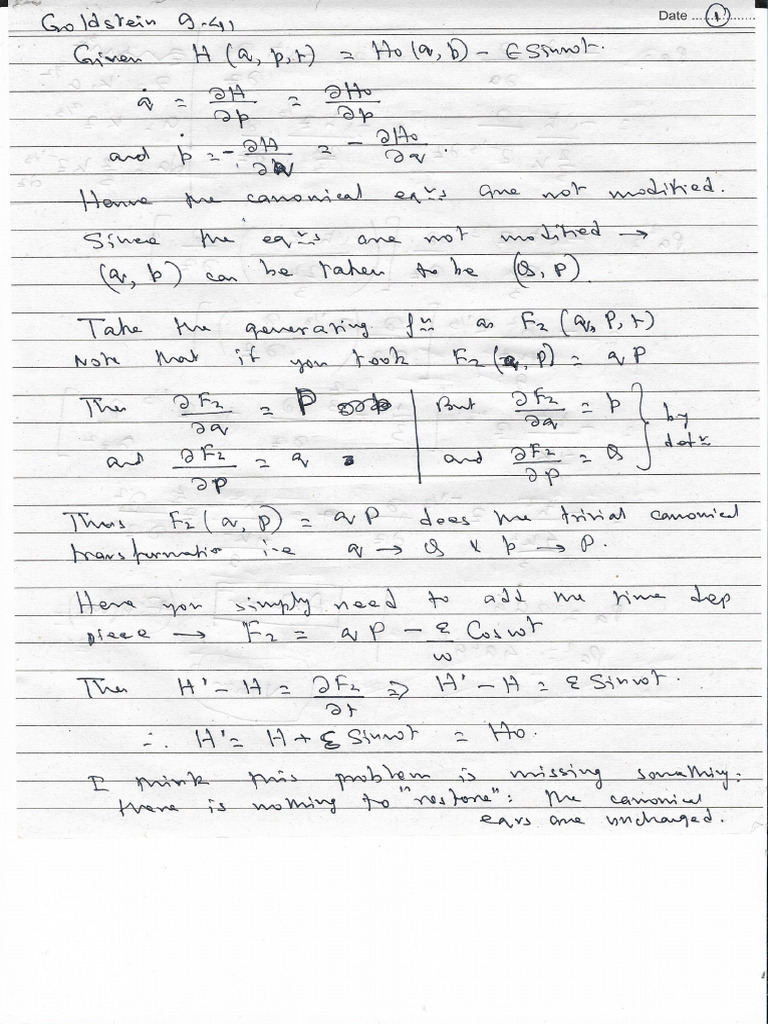 Goldstein 9.41
Date ...(1)......
Given H (q, p, t) = H₀ (q, p) - ε Sinωt.
q̇ = ∂H/∂p = ∂H₀/∂p
and ṗ = - ∂H/∂q = - ∂H₀/∂q .
Hence the canonical eqns are not modified.
Since the eqns are not modified →
(q, p) can be taken to be (Q, P)
Take the generating fn as F₂ (q, P, t)
Note that if you took F₂ (q, P) = q P
Then ∂F₂/∂q = P | But ∂F₂/∂q = p } by
and ∂F₂/∂P = q | and ∂F₂/∂P = Q } defn
Thus F₂ (q, P) = q P does the trivial canonical
transformation i.e q → Q & p → P.
Here you simply need to add the time dep
piece → F₂ = q P - ε/ω Cosωt
Then H' - H = ∂F₂/∂t ⇒ H' - H = ε Sinωt.
∴ H' = H + ε Sinωt = H₀.
I think this problem is missing something:
there is nothing to "restore": the canonical
eqns are unchanged.